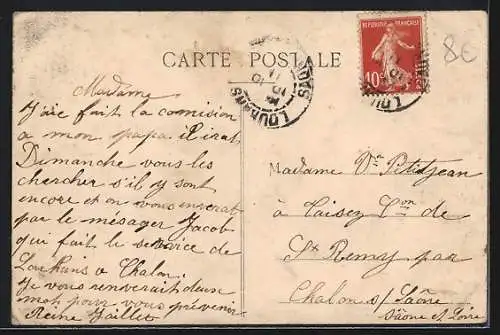 CARTE POSTALE
REPUBLIQUE FRANÇAISE
10
8€
LOUHANS
Madame
J'aie fait la comision
a mon papa il irat
Dimanche vous les
chercher s'il y sont
encore et on vous enverat
par le mésager Jacob
qui fait le service de
Louhans a Chalon.
Je vous renverait deux
mot pour vous prévenir
Reine Jaillet
Madame Vve Petitjean
à Taisez Con de
St Remy par
Chalon s/ Saône
Saône et Loire